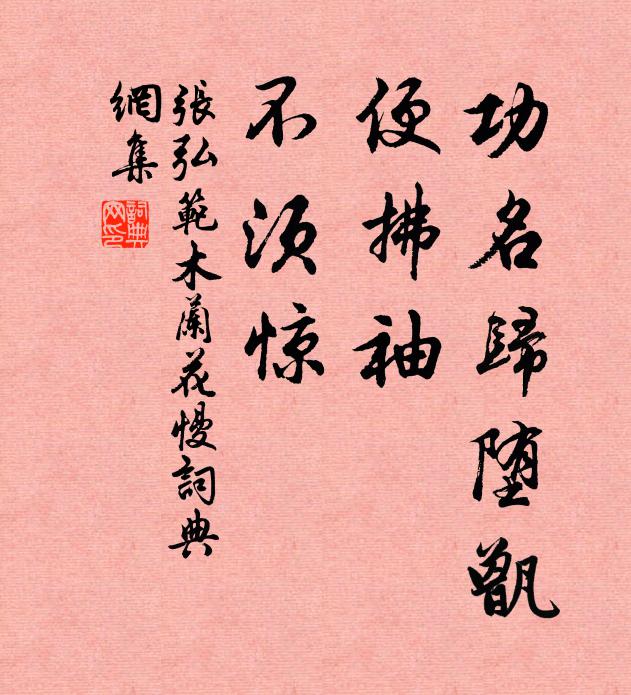 功名歸堕甑
便拂袖
不須惊
張弘範木蘭花慢詞典
網集
詞典
网印